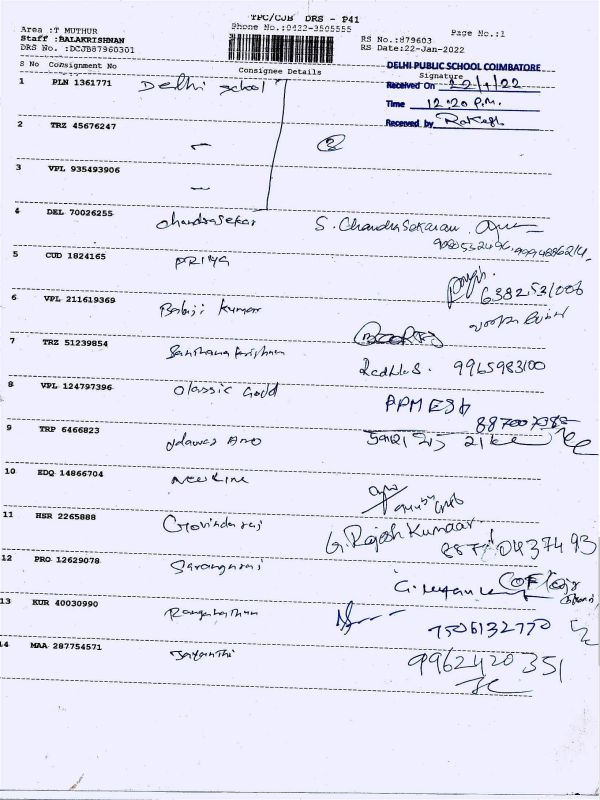 TPC/CJB DRS - P41
Area :T MUTHUR Phone No.:0422-3505555 Page No.:1
Staff :BALAKRISHNAN RS No.:879603
DRS No. :DCJB87960301 RS Date:22-Jan-2022
S No Consignment No Consignee Details Signature
DELHI PUBLIC SCHOOL COIMBATORE
Received On 22/1/22
Time 12.20 P.M.
Received by Rakesh
1 PLN 1361771 Delhi School
2 TRZ 45676247
3 VPL 935493906
4 DEL 70026255 chandrasekar S. Chandrasekaran
5 CUD 1824165 PRIYA
6382521006
6 VPL 211619369 Babiji Kumar
7 TRZ 51239854 Santhana Krishnan
9965983100
8 VPL 124797396 classic Gold
9 TRP 6466823
10 EDQ 14866704 Newline
11 HSR 2265888 Govindaraj G. Rajesh Kumaar
12 PRO 12629078 Sarangaraj
13 KUR 40030990 Ranganathan 7506132770
14 MAA 287754571 Jayanthi 9962420 351